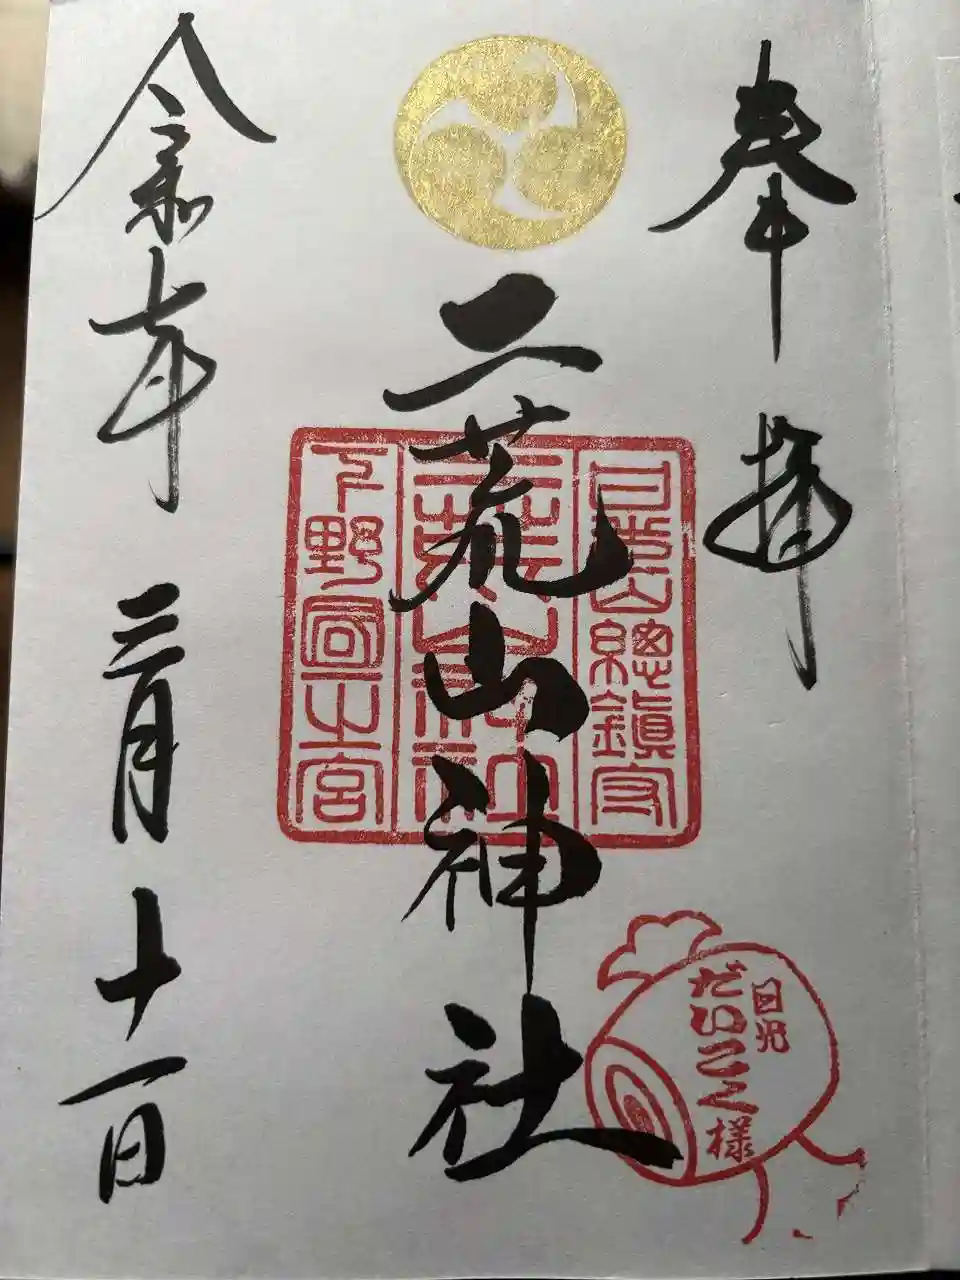 奉拝
日光山總鎭守
二荒山神社
二荒山神社
下野國一之宮
日光
だいこく様
令和七年三月十一日